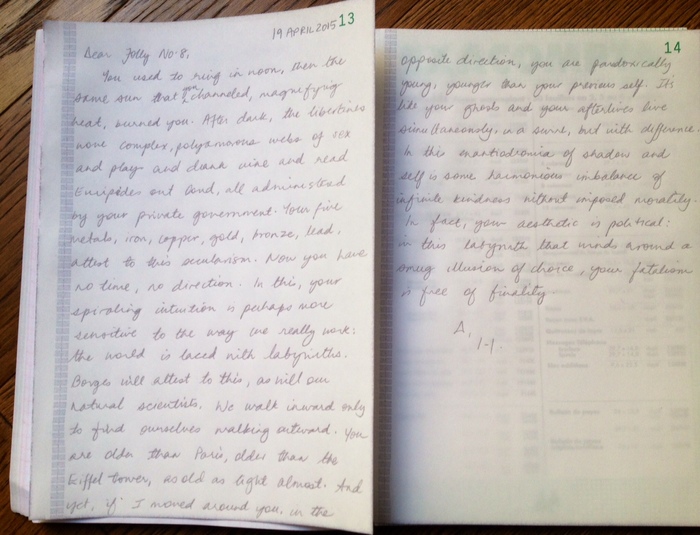 13
19 APRIL 2015
Dear Folly No. 8,
You used to ring in noon, then the
same sun that you channeled, magnifying
heat, burned you. After dark, the libertines
wove complex, polyamorous webs of sex
and play and drank wine and read
Euripides out loud, all administered
by your private government. Your five
metals, iron, copper, gold, bronze, lead,
attest to this secularism. Now you have
no time, no direction. In this, your
spiraling intuition is perhaps more
sensitive to the way we really work:
the world is laced with labyrinths.
Borges will attest to this, as will our
natural scientists. We walk inward only
to find ourselves walking outward. You
are older than Paris, older than the
Eiffel tower, as old as light almost. And
yet, if I moved around you in the
14
opposite direction, you are paradoxically
young, younger than your previous self. It's
like your ghosts and your afterlives live
simultaneously, in a sense, but with difference.
In this enantiodromia of shadow and
self is some harmonious imbalance of
infinite kindness without imposed morality.
In fact, your aesthetic is political:
in this labyrinth that winds around a
smug illusion of choice, your fatalism
is free of finality
A,
H.